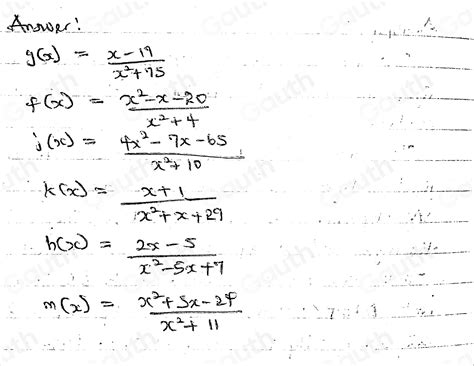 Answer:
g(x) = x-19 / x²+75
f(x) = x²-x-20 / x²+4
j(x) = 4x²-7x-65 / x²+10
k(x) = x+1 / x²+x+29
h(x) = 2x-5 / x²-5x+7
m(x) = x²+5x-24 / x²+11